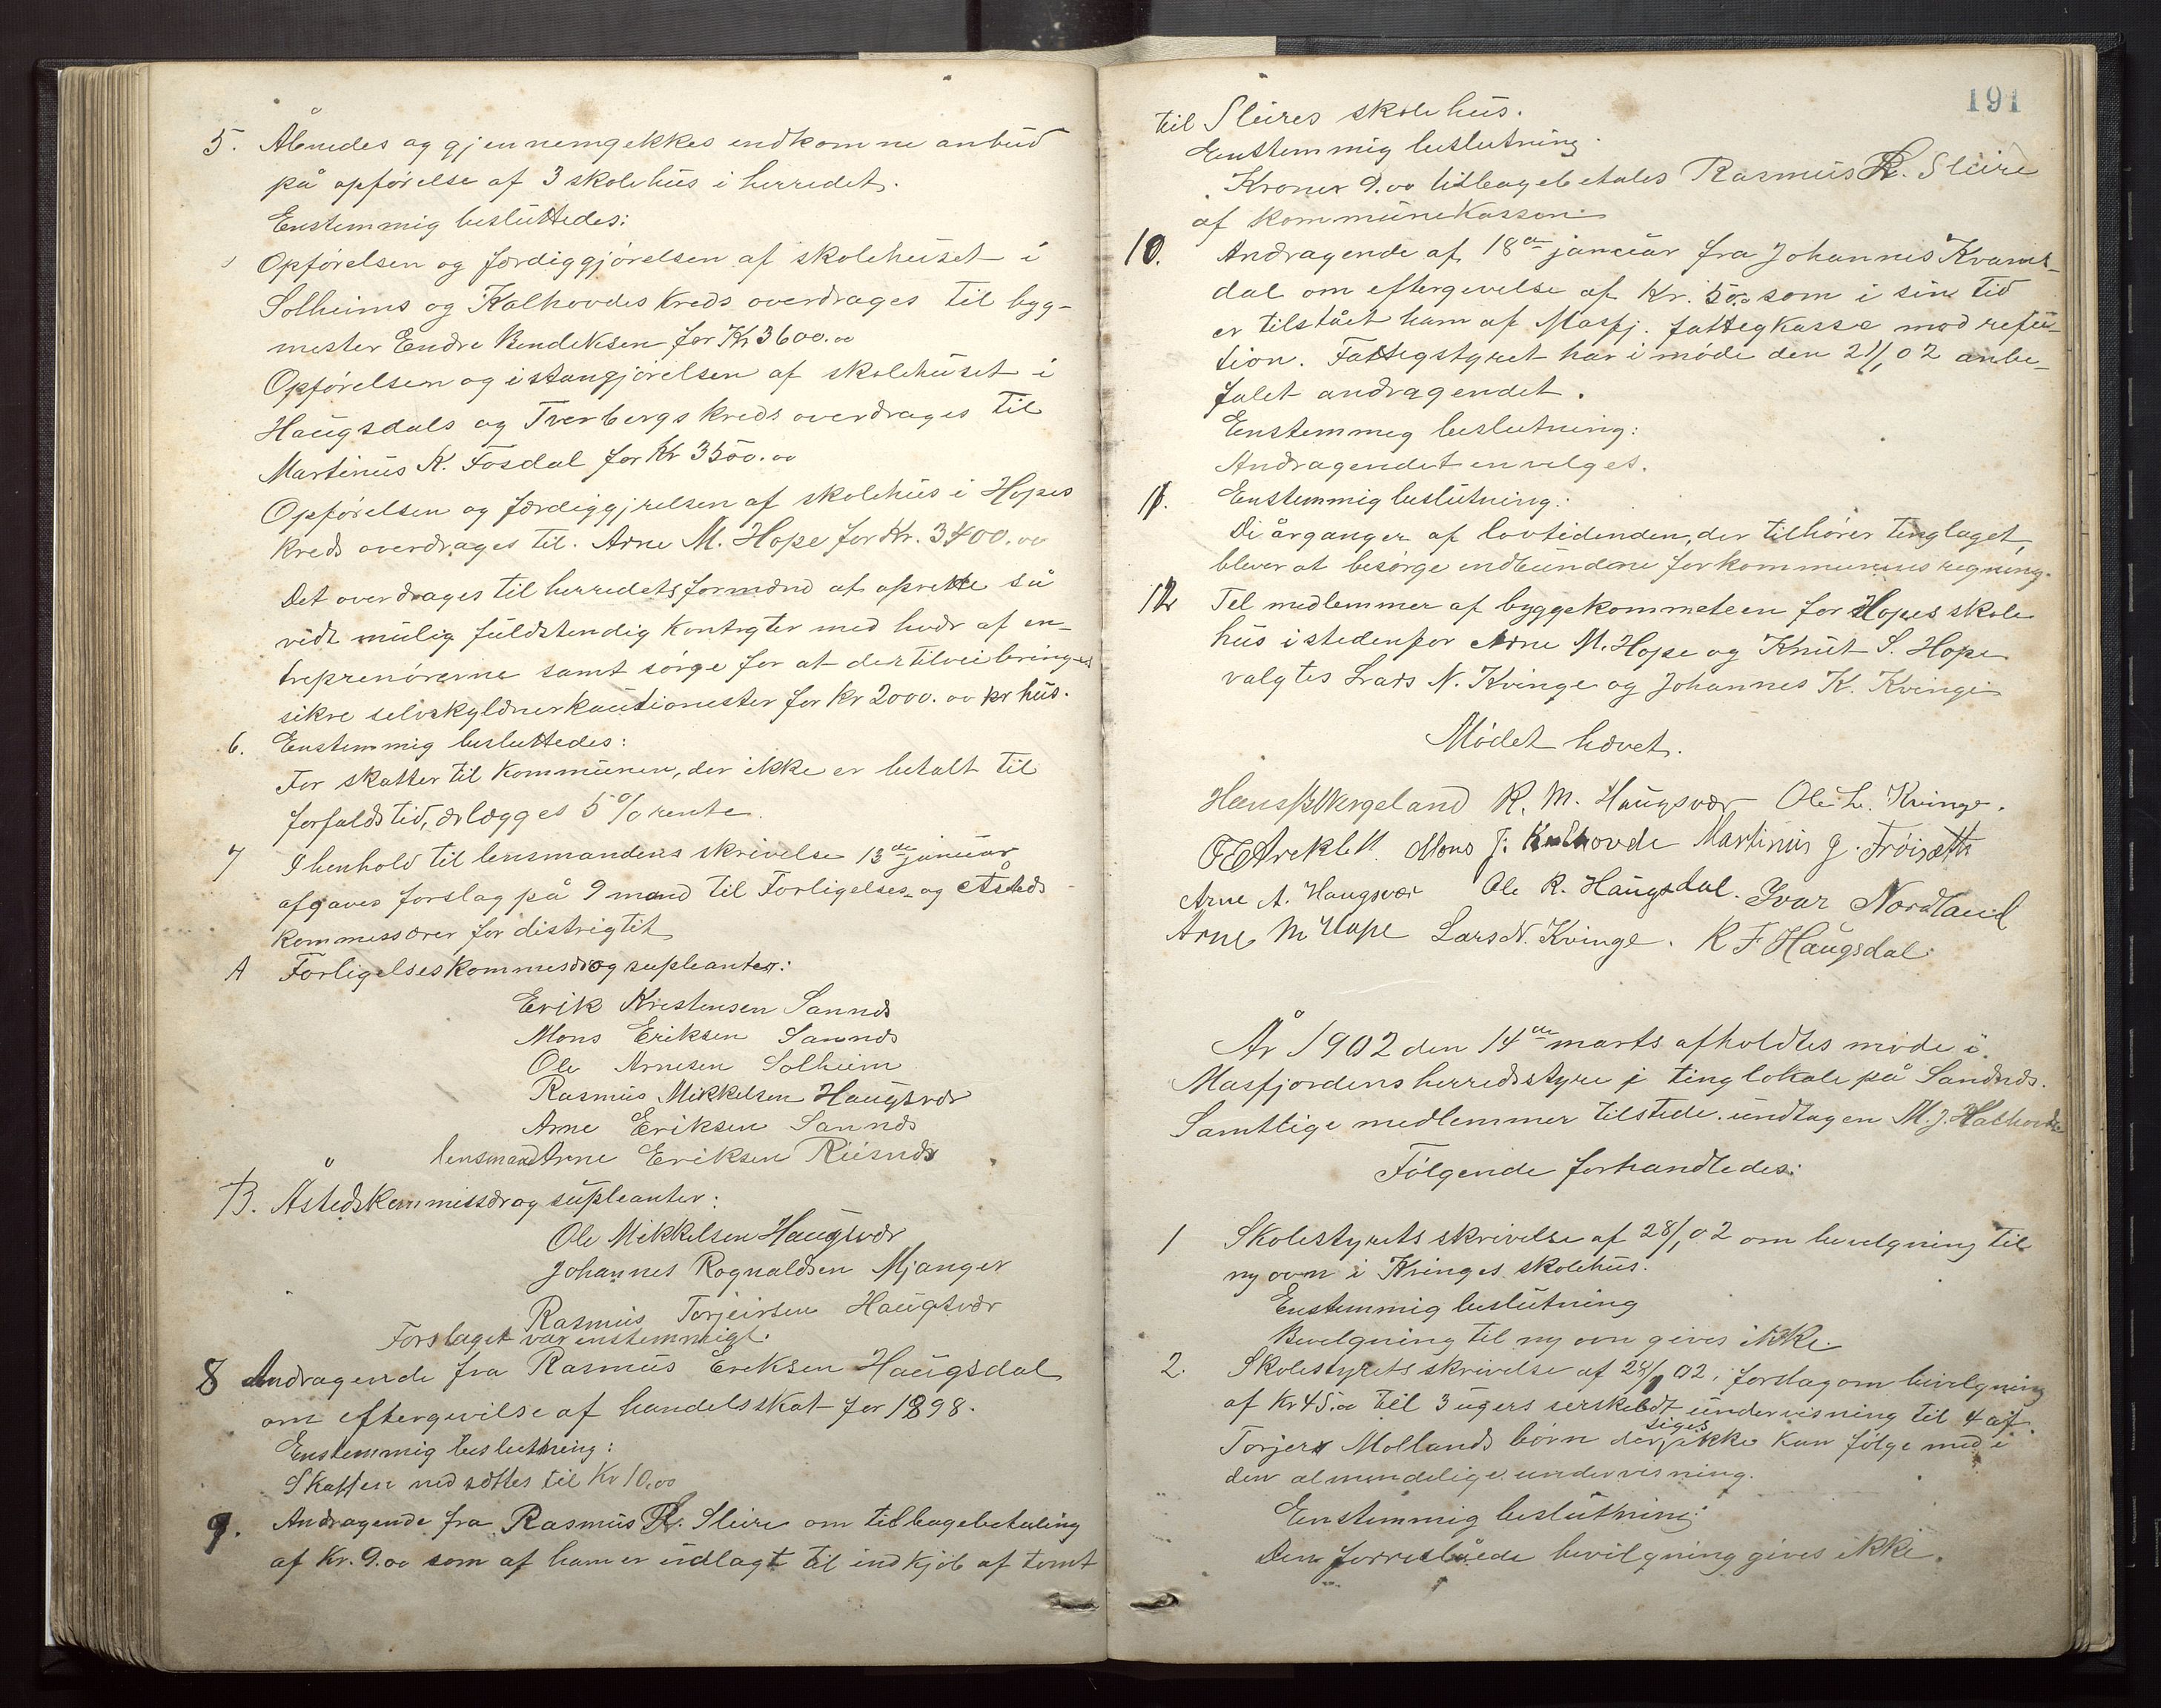 5. Åbnedes og gjennemgekkes indkomne anbud
på opførelse af 3 skolehus i herredet.
Enstemmig besluttedes:
Opførelsen og færdiggjørelsen af skolehuset i
Solheims og Kalhovdes kreds overdrages til byg-
mester Endre Bendiksen for Kr 3600.00
Opførelsen og istangjørelsen af skolehuset i
Haugsdals og Tverbergs kreds overdrages til
Martinus K. Fosdal for Kr 3500.00
Opførelsen og færdiggjrelsen af skolehus i Hopes
kreds overdrages til Arne M. Hope for Kr. 3400.00
Det overdrages til herredets formænd at oprette så
vidt mulig fuldstendig kontragter med hvær af en-
treprenørerne samt sørge for at der tilveibringes
sikre selvskyldnerkautionister for kr 2000.00 pr hus.
6. Enstemmig besluttedes:
For skatter til kommunen, der ikke er betalt til
forfaldstid, ærlægges 5 % rente.
7 I henhold til lensmandens skrivelse 13de januar
afgaves forslag på 9 mænd til Forligelses- og Åsteds-
kommissærer for distrigtet
A Forligelseskommissær og supleanter:
Erik Kristensen Sannæs
Mons Eriksen Sannæs
Ole Arnesen Solheim
Rasmus Mikkelsen Haugsvær
Arne Eriksen Sannæs
lensmand Arne Eriksen Risnæs
B. Åstedskommissær og supleanter:
Ole Mikkelsen Haugsvær
Johannes Rognaldsen Mjanger
Rasmus Torjeirsen Haugsvær
Forslaget var enstemmigt.
8 Andragende fra Rasmus Eriksen Haugsdal
om eftergivelse af handelsskat for 1898.
Enstemmig beslutning:
Skatten nedsættes til Kr 10.00
9. Andragende fra Rasmus R. Sleire om tilbagebetaling
af Kr. 9.00 som af ham er udlagt til indkjøb af tomt
191
til Sleires skolehus.
Enstemmig beslutning.
Kroner 9.00 tilbagebetales Rasmus R. Sleire
af kommunekassen
10. Andragende af 18de januar fra Johannes Kvams-
dal om eftergivelse af Kr. 50.00 som i sin tid
er tilstået ham af Masfj. fattigkasse mod refu-
tion. Fattigstyret har i møde den 21/1 02 anbe-
falet andragendet.
Enstemmig beslutning:
Andragendet envilges.
11. Enstemmig beslutning:
De årganger af lovtidenden, der tilhører tinglaget,
blever at besørge indbundne for kommunens regning.
12 Til medlemmer af byggekommeteen for Hopes skole
hus istedenfor Arne M. Hope og Knut S. Hope
valgtes Lars N. Kvinge og Johannes K. Kvinge
Mødet hævet.
Hans P. Wergeland R. M. Haugsvær Ole L. Kvinge.
Mons J. Kalhovde Martinus J. Frøisætt
Arne A. Haugsvær Ole R. Haugsdal. Ivar Nordland
Arne M Hope Lars N. Kvinge. R F Haugsdal
År 1902 den 14de marts afholdtes møde i
Masfjordens herredsstyre i tinglokale på Sandnæs.
Samtlige medlemmer tilstede undtagen M. J. Kalhovde
Følgende forhandledes:
1 Skolestyrets skrivelse af 28/1 02 om bevilgning til
ny ovn i Kvinges skolehus.
Enstemmig beslutning
Bevilgning til ny ovn gives ikke.
2. Skolestyrets skrivelse af 28/1 02, forslag om bevilgning
af Kr 45.00 til 3 ugers serskildt undervisning til 4 af
Torjer Mollands børn der siges ikke kan følge med i
den almindelige undervisning.
Enstemmig beslutning:
Den forreslåede bevilgning gives ikke.